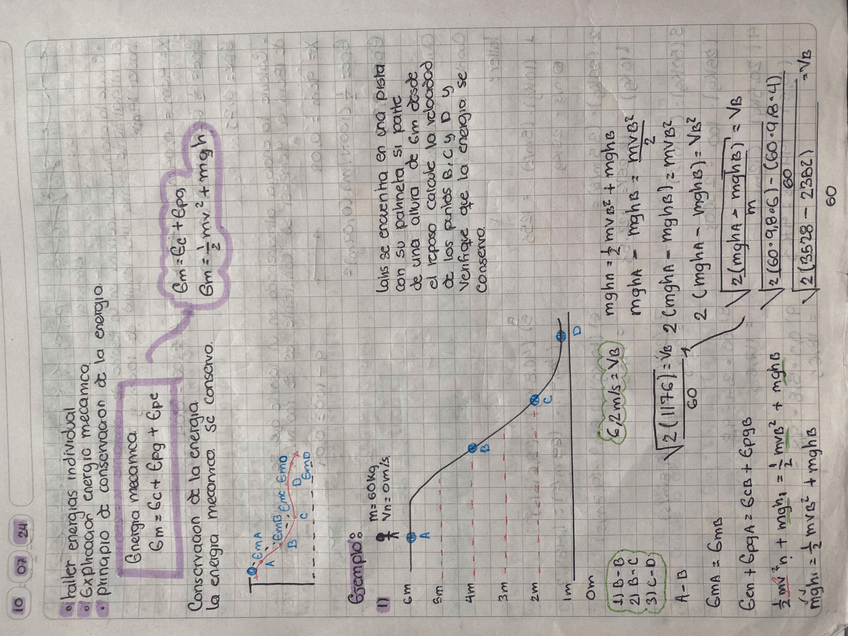 10 07 24
• taller energias individual
• explicacion energia mecanica
• principio de conservacion de la energia
Energia mecanica
Em = Ec + Epg + Epe
Em = Ec + Epg
Em = 1/2 mv² + mgh
Conservacion de la energia
la energia mecanica se conserva.
EmA
A
EmB
B
EmC
C
EmD
D
EmD
Ejemplo:
1)
m = 60kg
Vn = 0m/s
luis se encuentra en una pista
con su patineta si parte
de una altura de 6m desde
el reposo calcule la velocidad
de los puntos B, C y D
Verifique que la energia se
conserva
6m
A
5m
4m
B
3m
2m
C
1m
D
0m
1) B - B
2) B - C
3) C - D
A - B
EmA = EmB
Ecn + EpgA = EcB + EpgB
1/2 mv²n + mgh1 = 1/2 mvB² + mghB
mgh1 = 1/2 mvB² + mghB
mghA = 1/2 mvB² + mghB
mghA - mghB = mvB²/2
2 (mghA - mghB) = mvB²
2 (mghA - mghB) = VB²
√2(mghA - mghB)/m = VB
√2(60·9,8·6) - (60·9,8·4)/60
√2(3528 - 2352)/60 = VB
√2(1176)/60 = VB
6,2 m/s = VB